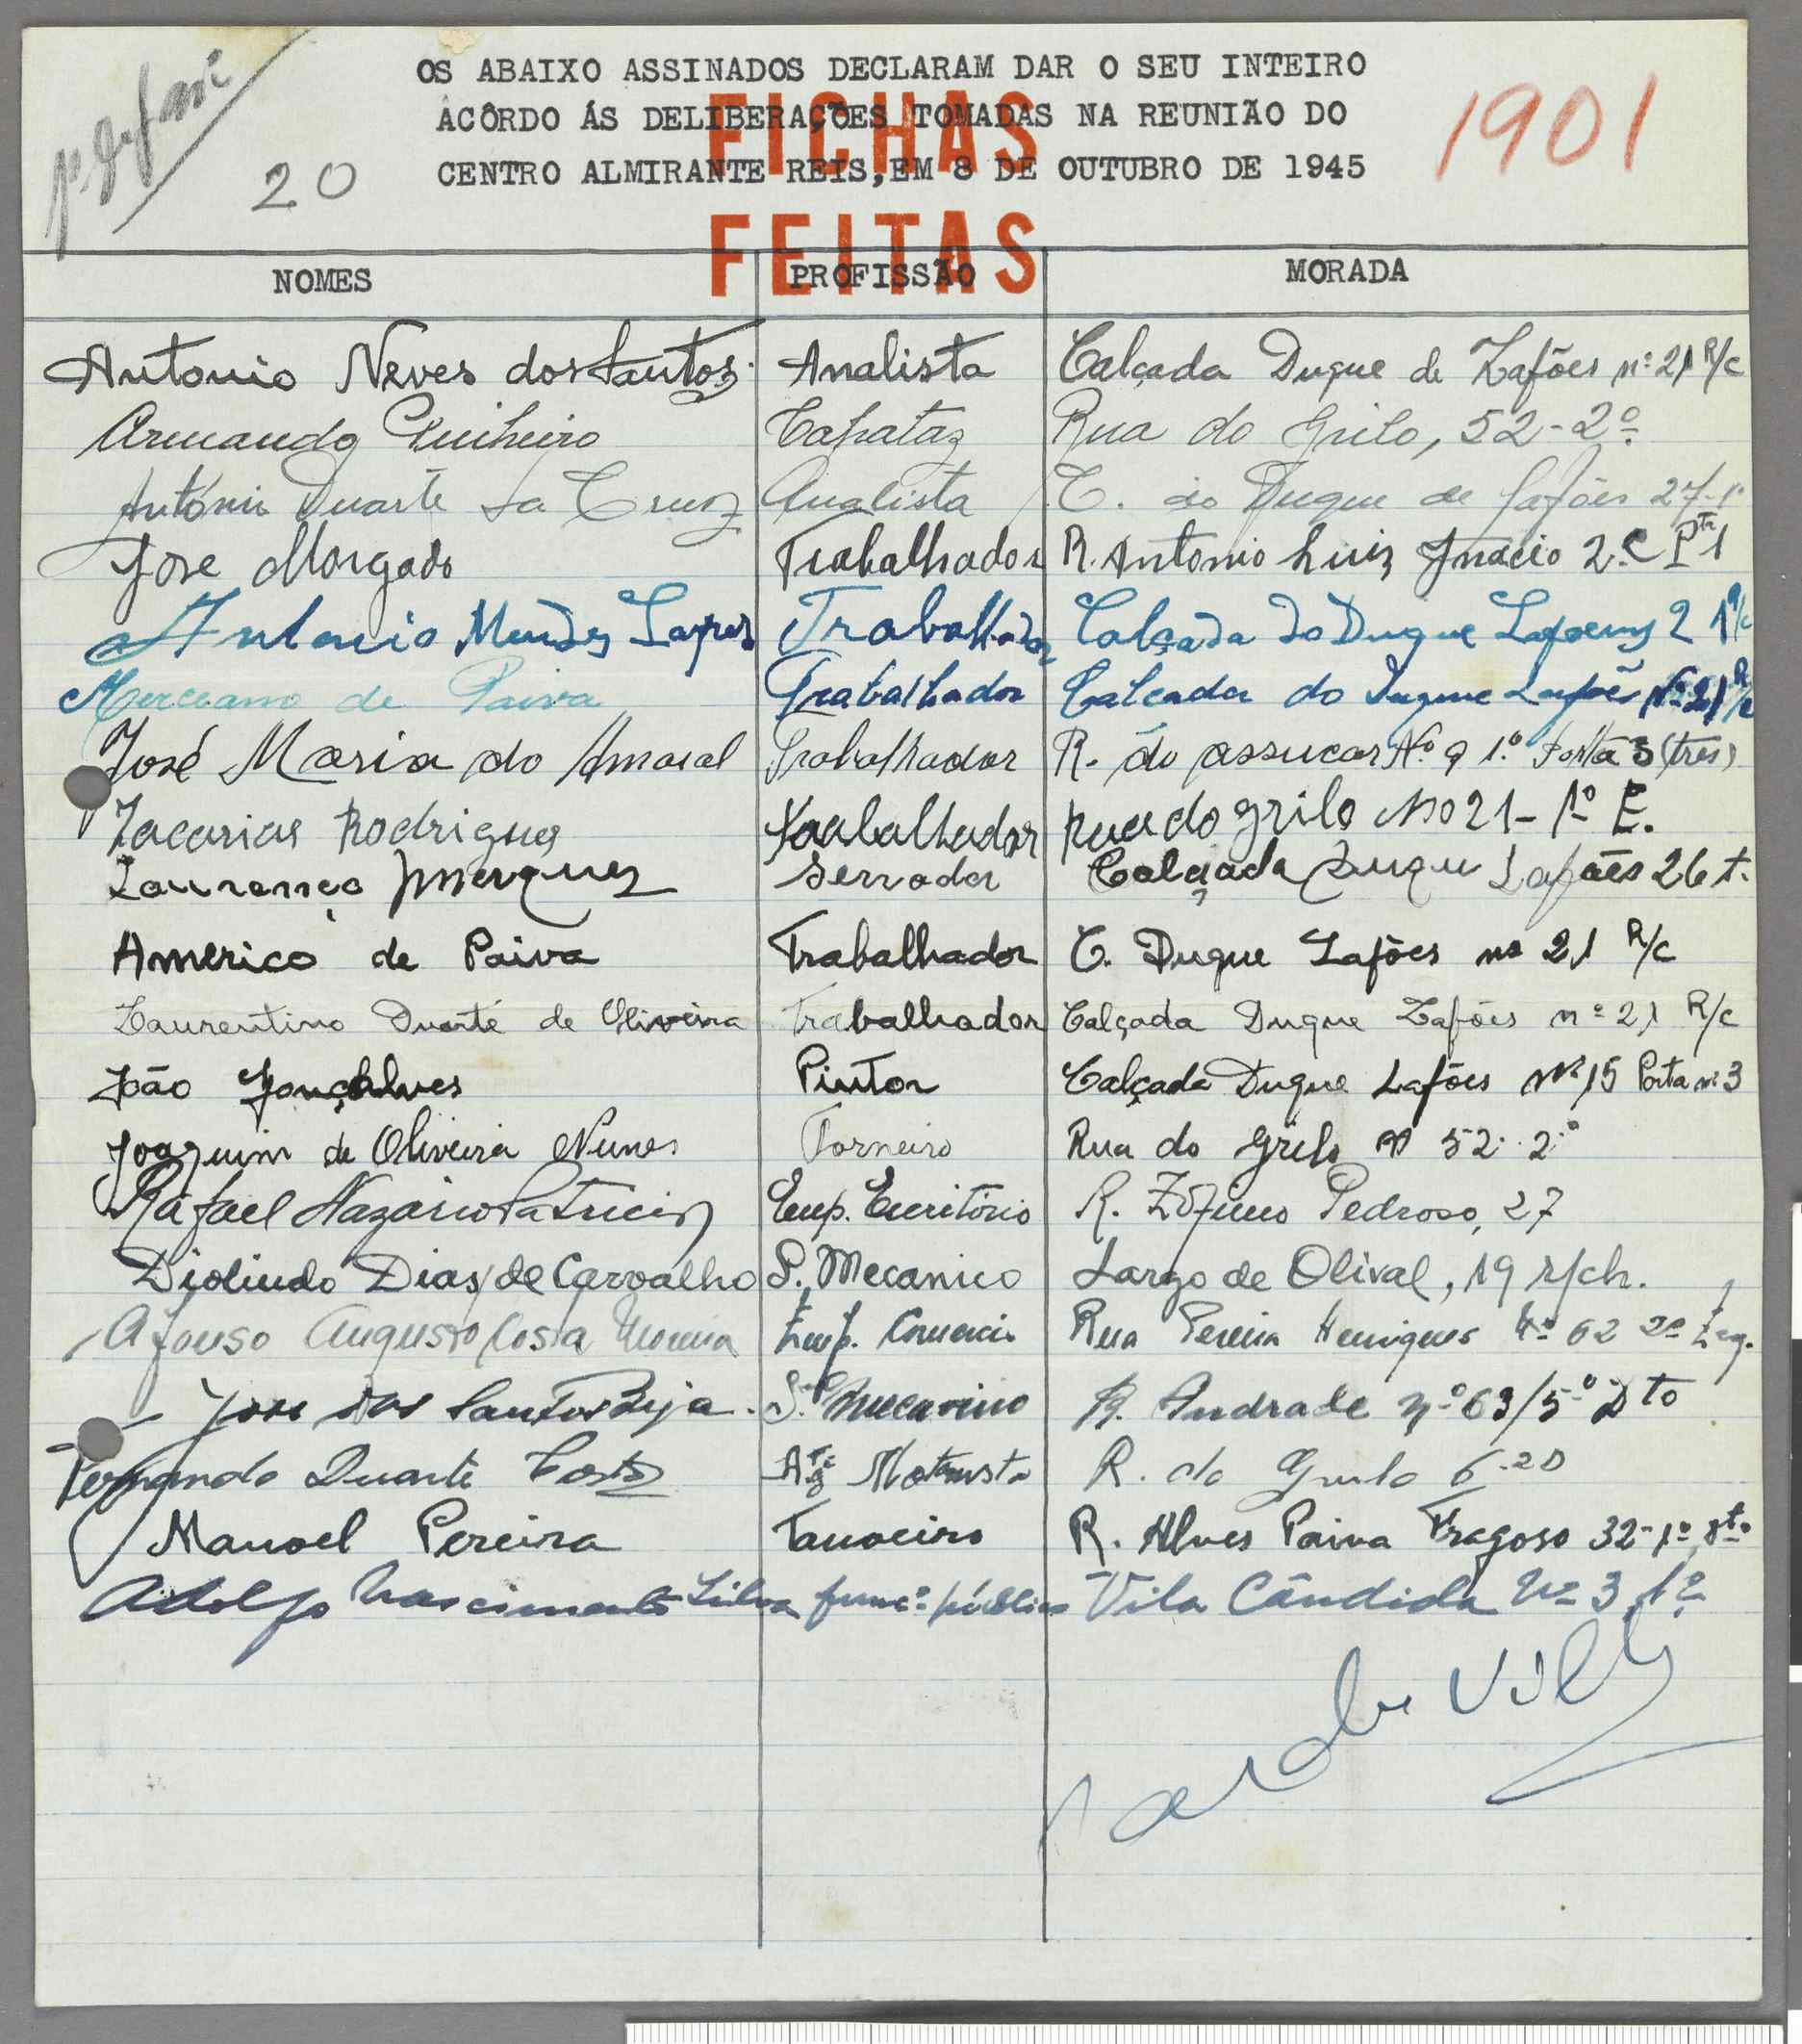 OS ABAIXO ASSINADOS DECLARAM DAR O SEU INTEIRO
ACÔRDO ÁS DELIBERAÇÕES TOMADAS NA REUNIÃO DO
CENTRO ALMIRANTE REIS, EM 8 DE OUTUBRO DE 1945
1901
20
FICHAS
FEITAS
NOMES PROFISSÃO MORADA
Antonio Neves dos Santos Analista Calçada Duque de Lafões nº 21 R/c
Armando Pinheiro Capataz Rua do Grilo, 52-2º
António Duarte da Cruz Analista C. do Duque de Lafões 27-1º
Jose Morgado Trabalhador R. Antonio Luiz Inacio 2.C Pta 1
Antonio Mendes Trabalhador Calçada do Duque 2 1 R/c
de Paiva Trabalhador Calcada do Duque Lafões Nº 21 R/c
José Maria do Amaral Trabalhador R. do assucar Nº 9 1.º Porta 3 (tres)
Zacarias Rodrigues Trabalhador Rua do grilo No 21-1º E.
Lourenço Marques Serrador Calçada Duque Lafões 26 t.
Americo de Paiva Trabalhador C. Duque Lafões nº 21 R/c
Laurentino Duarte de Oliveira Trabalhador Calçada Duque Lafões nº 21 R/c
João Gonçalves Pintor Calçada Duque Lafões nº 15 Porta nº 3
Joaquim de Oliveira Nunes Torneiro Rua do Grilo nº 52-2º
Rafael Nazário Patricio Emp. Escritório R. Zófimo Pedroso, 27
Diolindo Dias de Carvalho S. Mecanico Largo de Olival, 19 r/ch.
Afonso Augusto Costa Moreira Emp. Comercio Rua Pereira Henriques Nº 62 2º Esq.
Jose dos Santos S. Mecanico R. Andrade nº 63/5º Dto
Fernando Duarte Costa Motorista R. do Grilo 6-2º
Manoel Pereira Tanoeiro R. Alves Paiva Fragoso 32-1º dto
Adolfo Nascimento Silva funcº público Vila Cândida Nº 3 1º